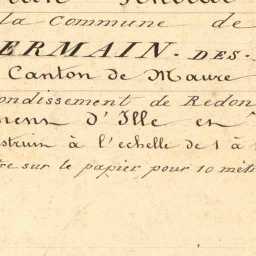 la Commune de
ERMAIN-DES-
Canton de Maure
ondissement de Redon
d'Ille et
struit à l'échelle de 1 à
sur le papier pour 10